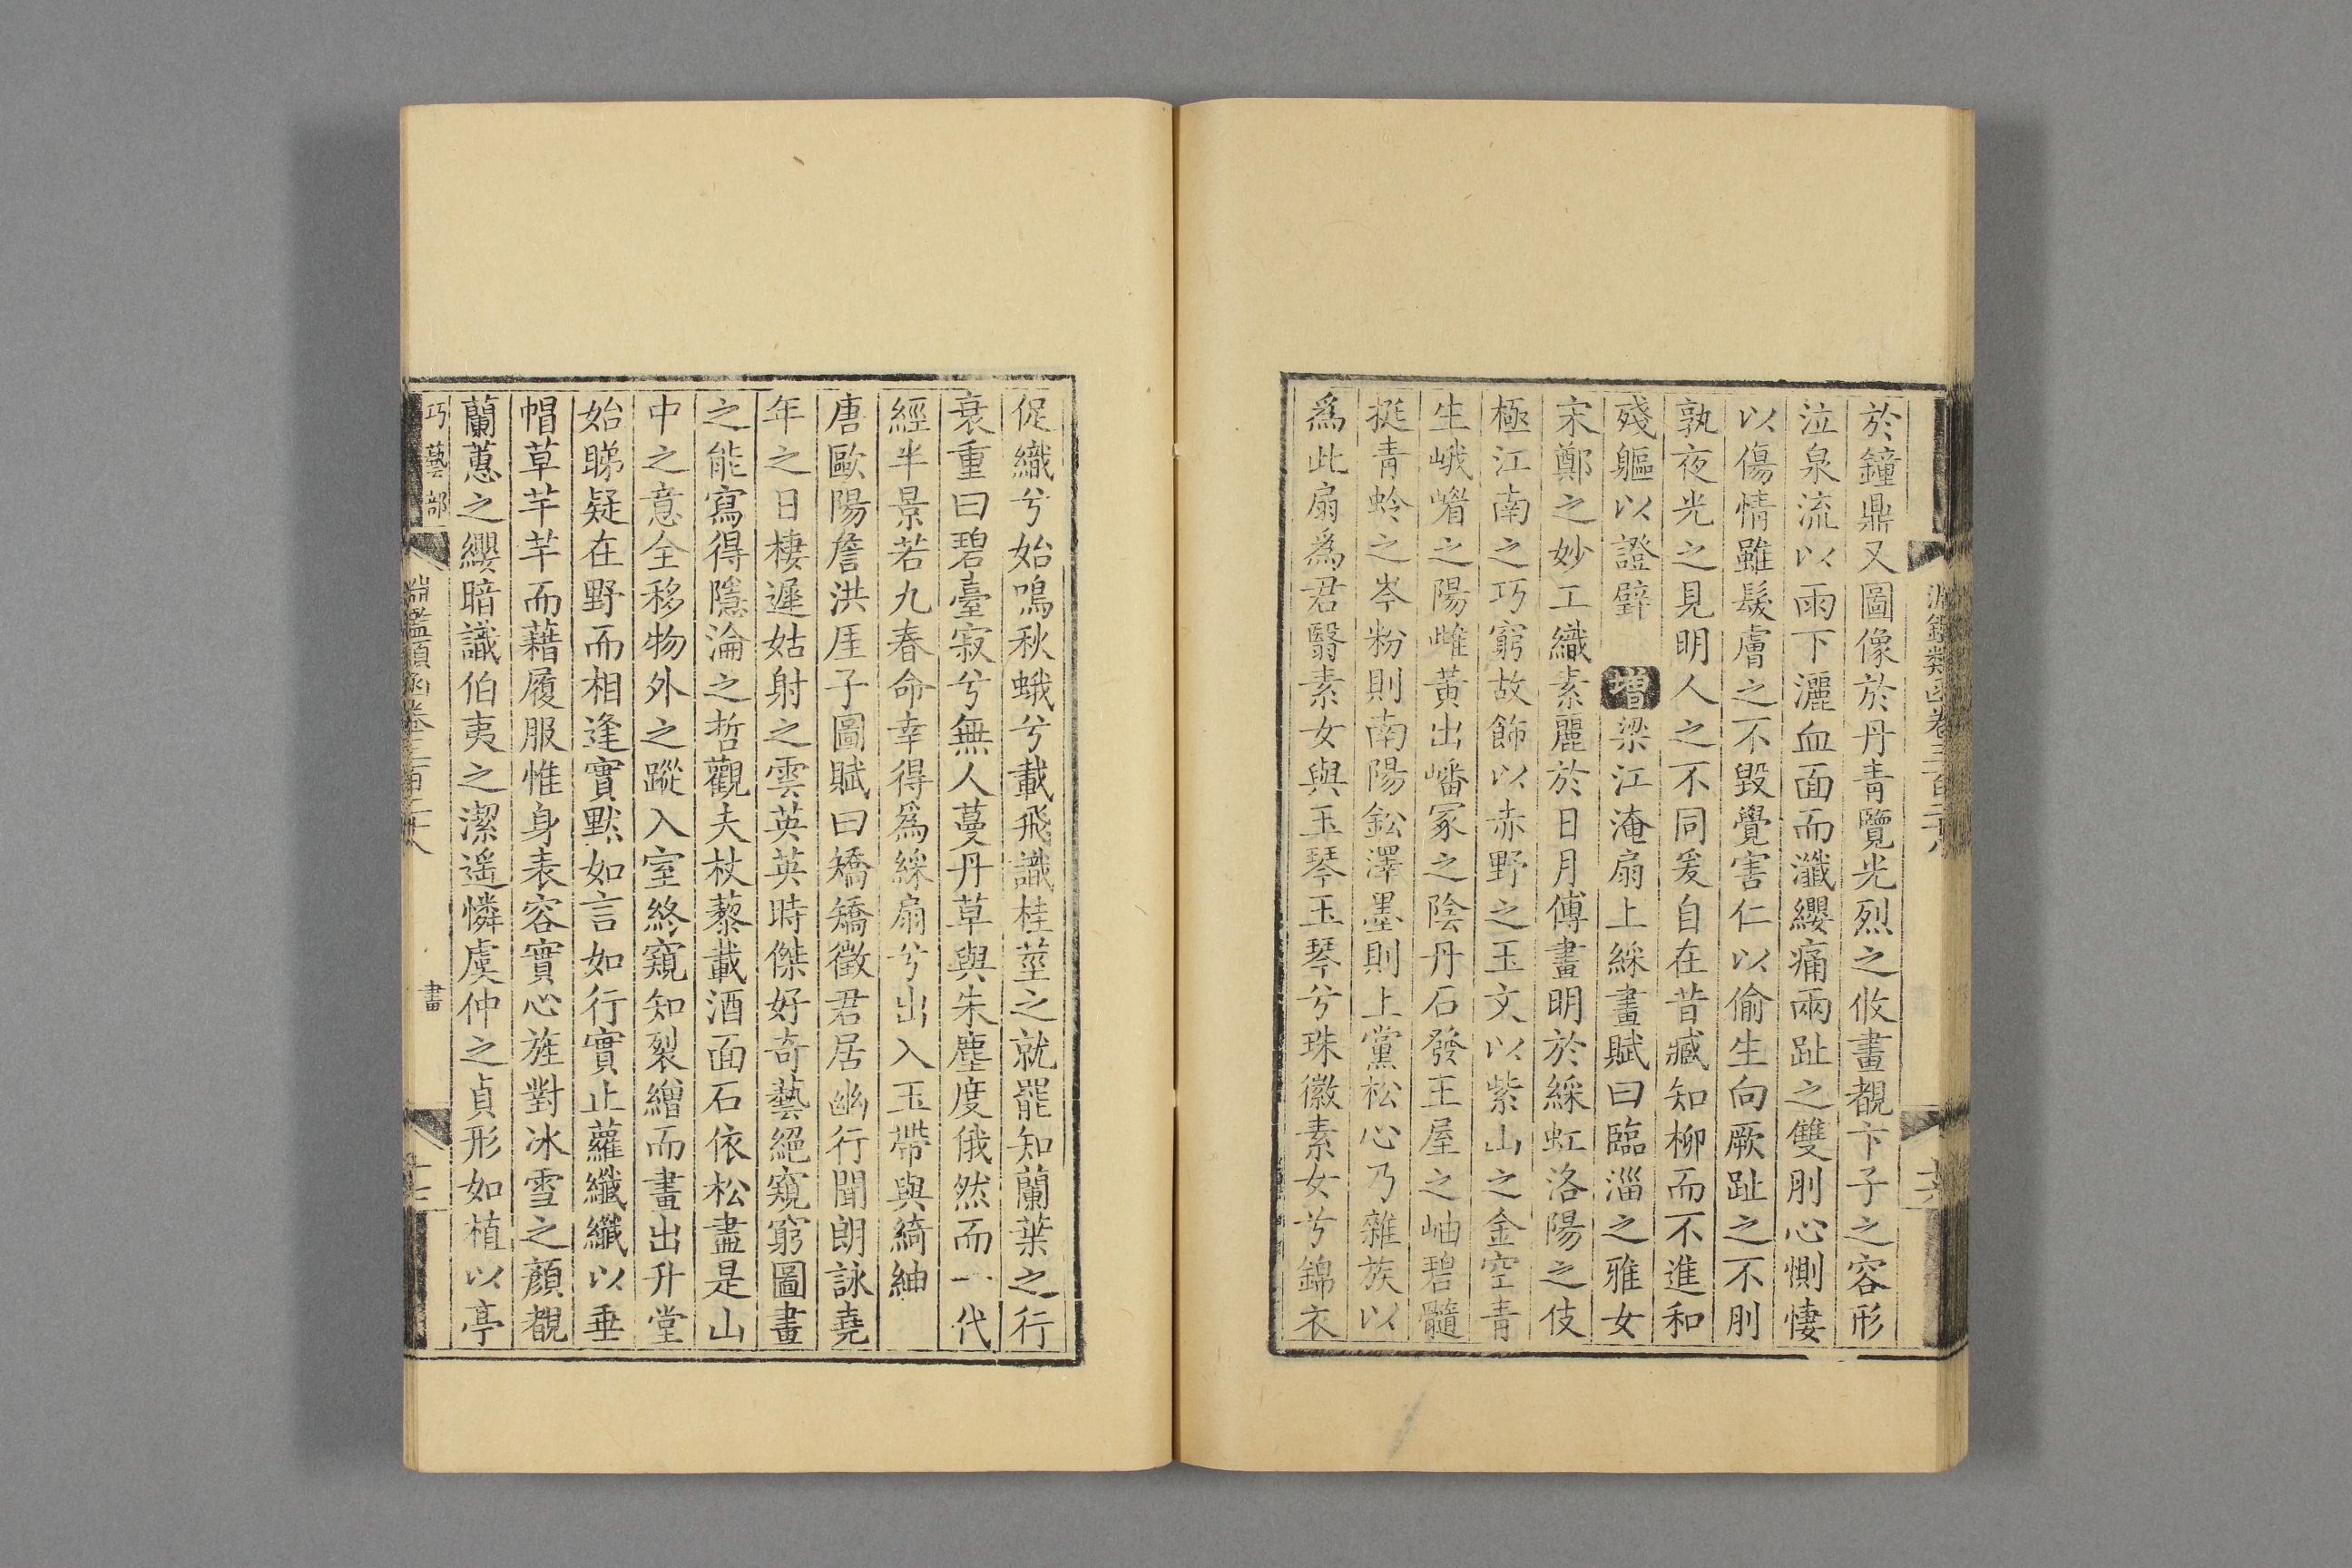 於鐘鼎又圖像於丹青覽光烈之攸畫覩卞子之容形
泣泉流以雨下灑血面而瀸纓痛兩趾之雙刖心惻悽
以傷情雖髮膚之不毀覺害仁以偷生向厥趾之不刖
孰夜光之見明人之不同爰自在昔臧知柳而不進和
殘軀以證璧　增梁江淹扇上綵畫賦曰臨淄之雅女
宋鄭之妙工織素麗於日月傅畫明於綵虹洛陽之伎
極江南之巧窮故飾以赤野之玉文以紫山之金空青
生峨嵋之陽雌黃出嶓冢之陰丹石發王屋之岫碧髓
挺青蛉之岑粉則南陽鈆澤墨則上黨松心乃雜族以
爲此扇爲君翳素女與玉琴玉琴兮珠徽素女兮錦衣
促織兮始鳴秋蛾兮載飛識桂莖之就罷知蘭葉之行
衰重曰碧臺寂兮無人蔓丹草與朱塵度俄然而一代
經半景若九春命幸得爲綵扇兮出入玉帶與綺紳
唐歐陽詹洪厓子圖賦曰矯矯徵君居幽行聞朗詠堯
年之日棲遲姑射之雲英英時傑好奇藝絕窺窮圖畫
之能寫得隱淪之哲觀夫杖藜載酒面石依松盡是山
中之意全移物外之蹤入室終窺知裂繒而畫出升堂
始睇疑在野而相逢實默如言如行實止蘿纖纖以垂
帽草芊芊而藉履服惟身表容實心旌對冰雪之顏覩
蘭蕙之纓暗識伯夷之潔遥憐虞仲之貞形如植以亭
巧藝部　淵鑑類函卷三百二十八　畫　十七